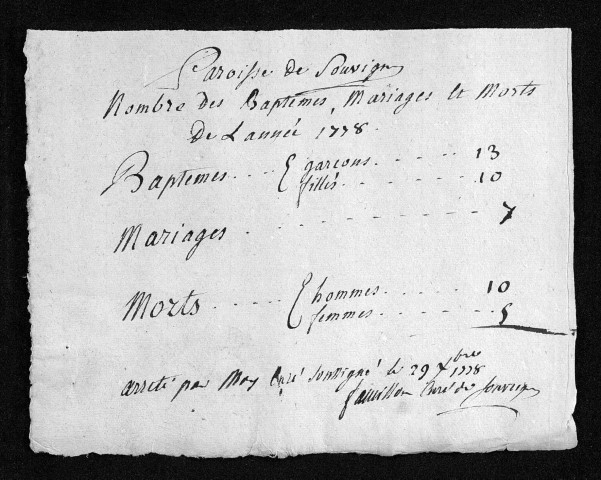 Paroisse de Souvigny
Nombre des Baptemes, Mariages et Morts
De L'année 1778.
Baptemes ... { garçons ...... 13
filles ...... 10
Mariages ........ 7
Morts ..... { hommes ...... 10
femmes ...... 5
arreté par Moy Curé soussigné le 29 Xbre 1778
Curé de Souvigny